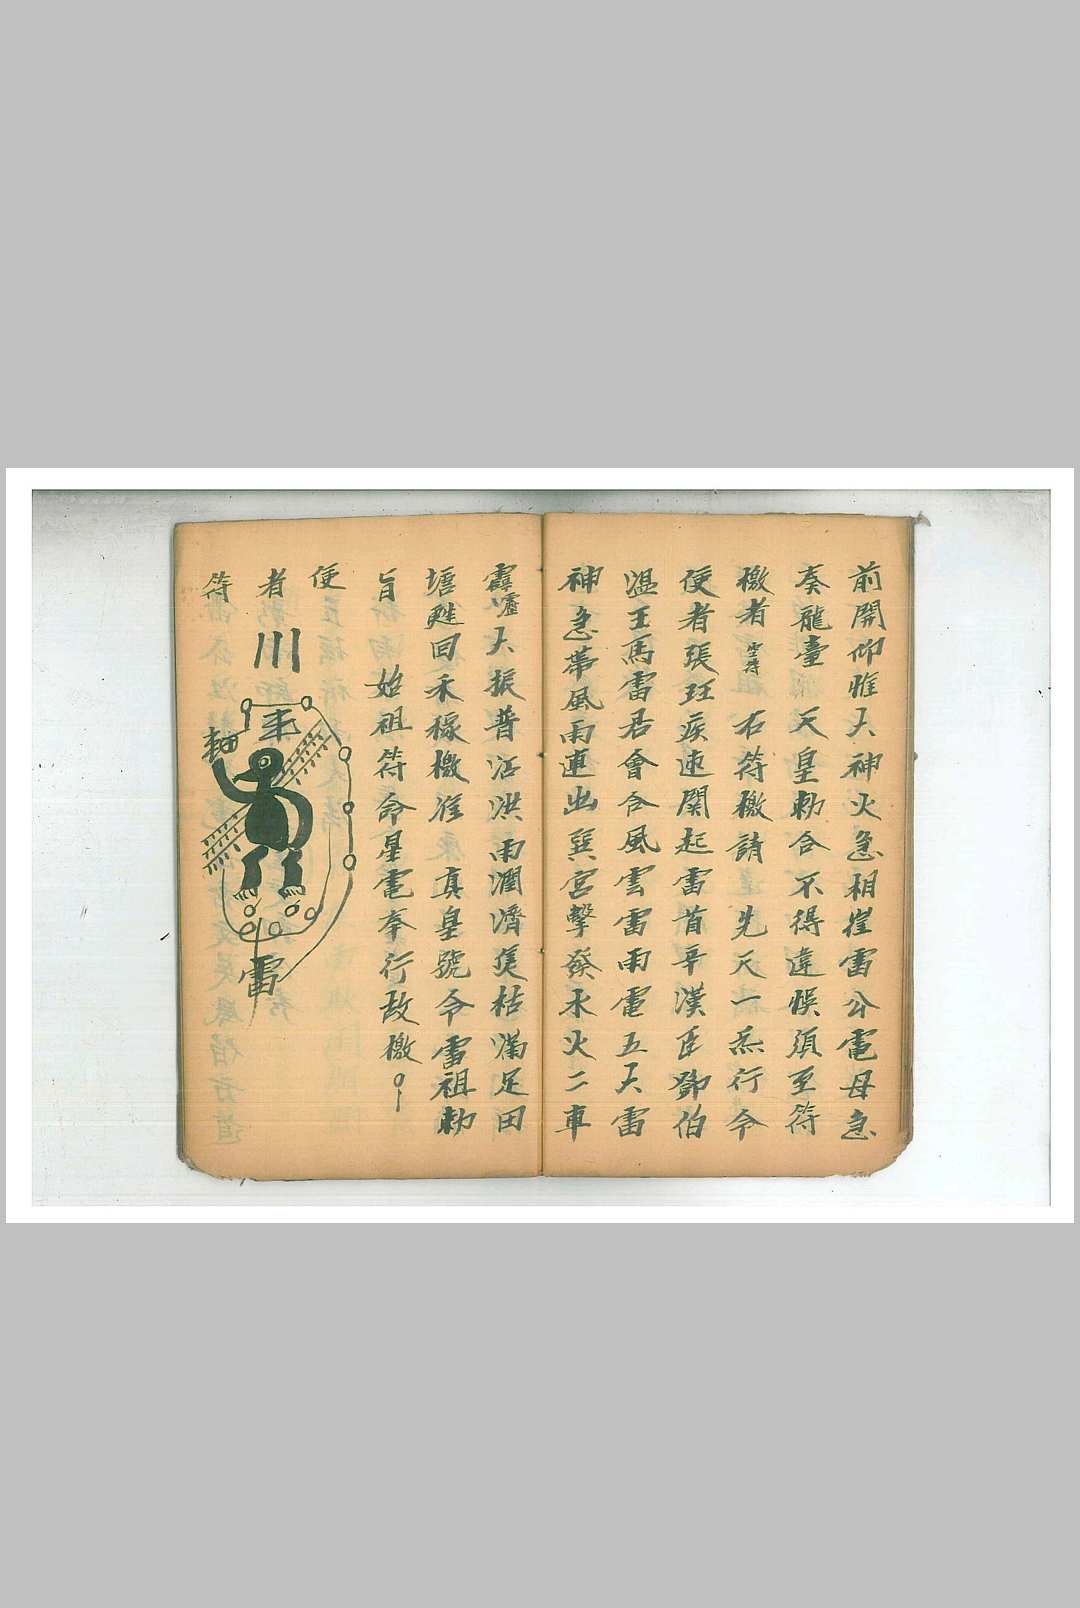 前開仰惟大神火急相崔雷公電母急
奏龍臺 天皇勅合不得違悞須至符
檄者 雷符 右符檄請 先天一炁行令
使者張珏疾速関起雷首辛漢臣鄧伯
溫王馬雷君會合風雲雷雨電五大雷
神急帶風雨速出巽宮擊發水火二車
霹靂大振普沾洪雨潤濟焦枯滿足田
塘甦回禾稼檄准 真皇號令雷祖勅
旨 始祖符命星電奉行故檄
使
者
符
雷